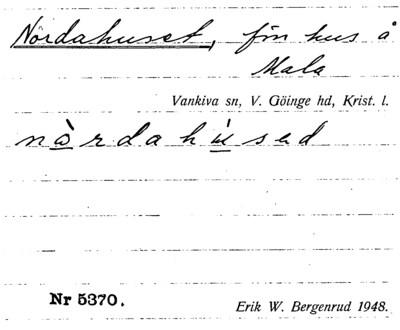 Nördahuset, fvn hus å
Mala
Vankiva sn, V. Göinge hd, Krist. l.
nàrdahùsed
Nr 5370.
Erik W. Bergenrud 1948.